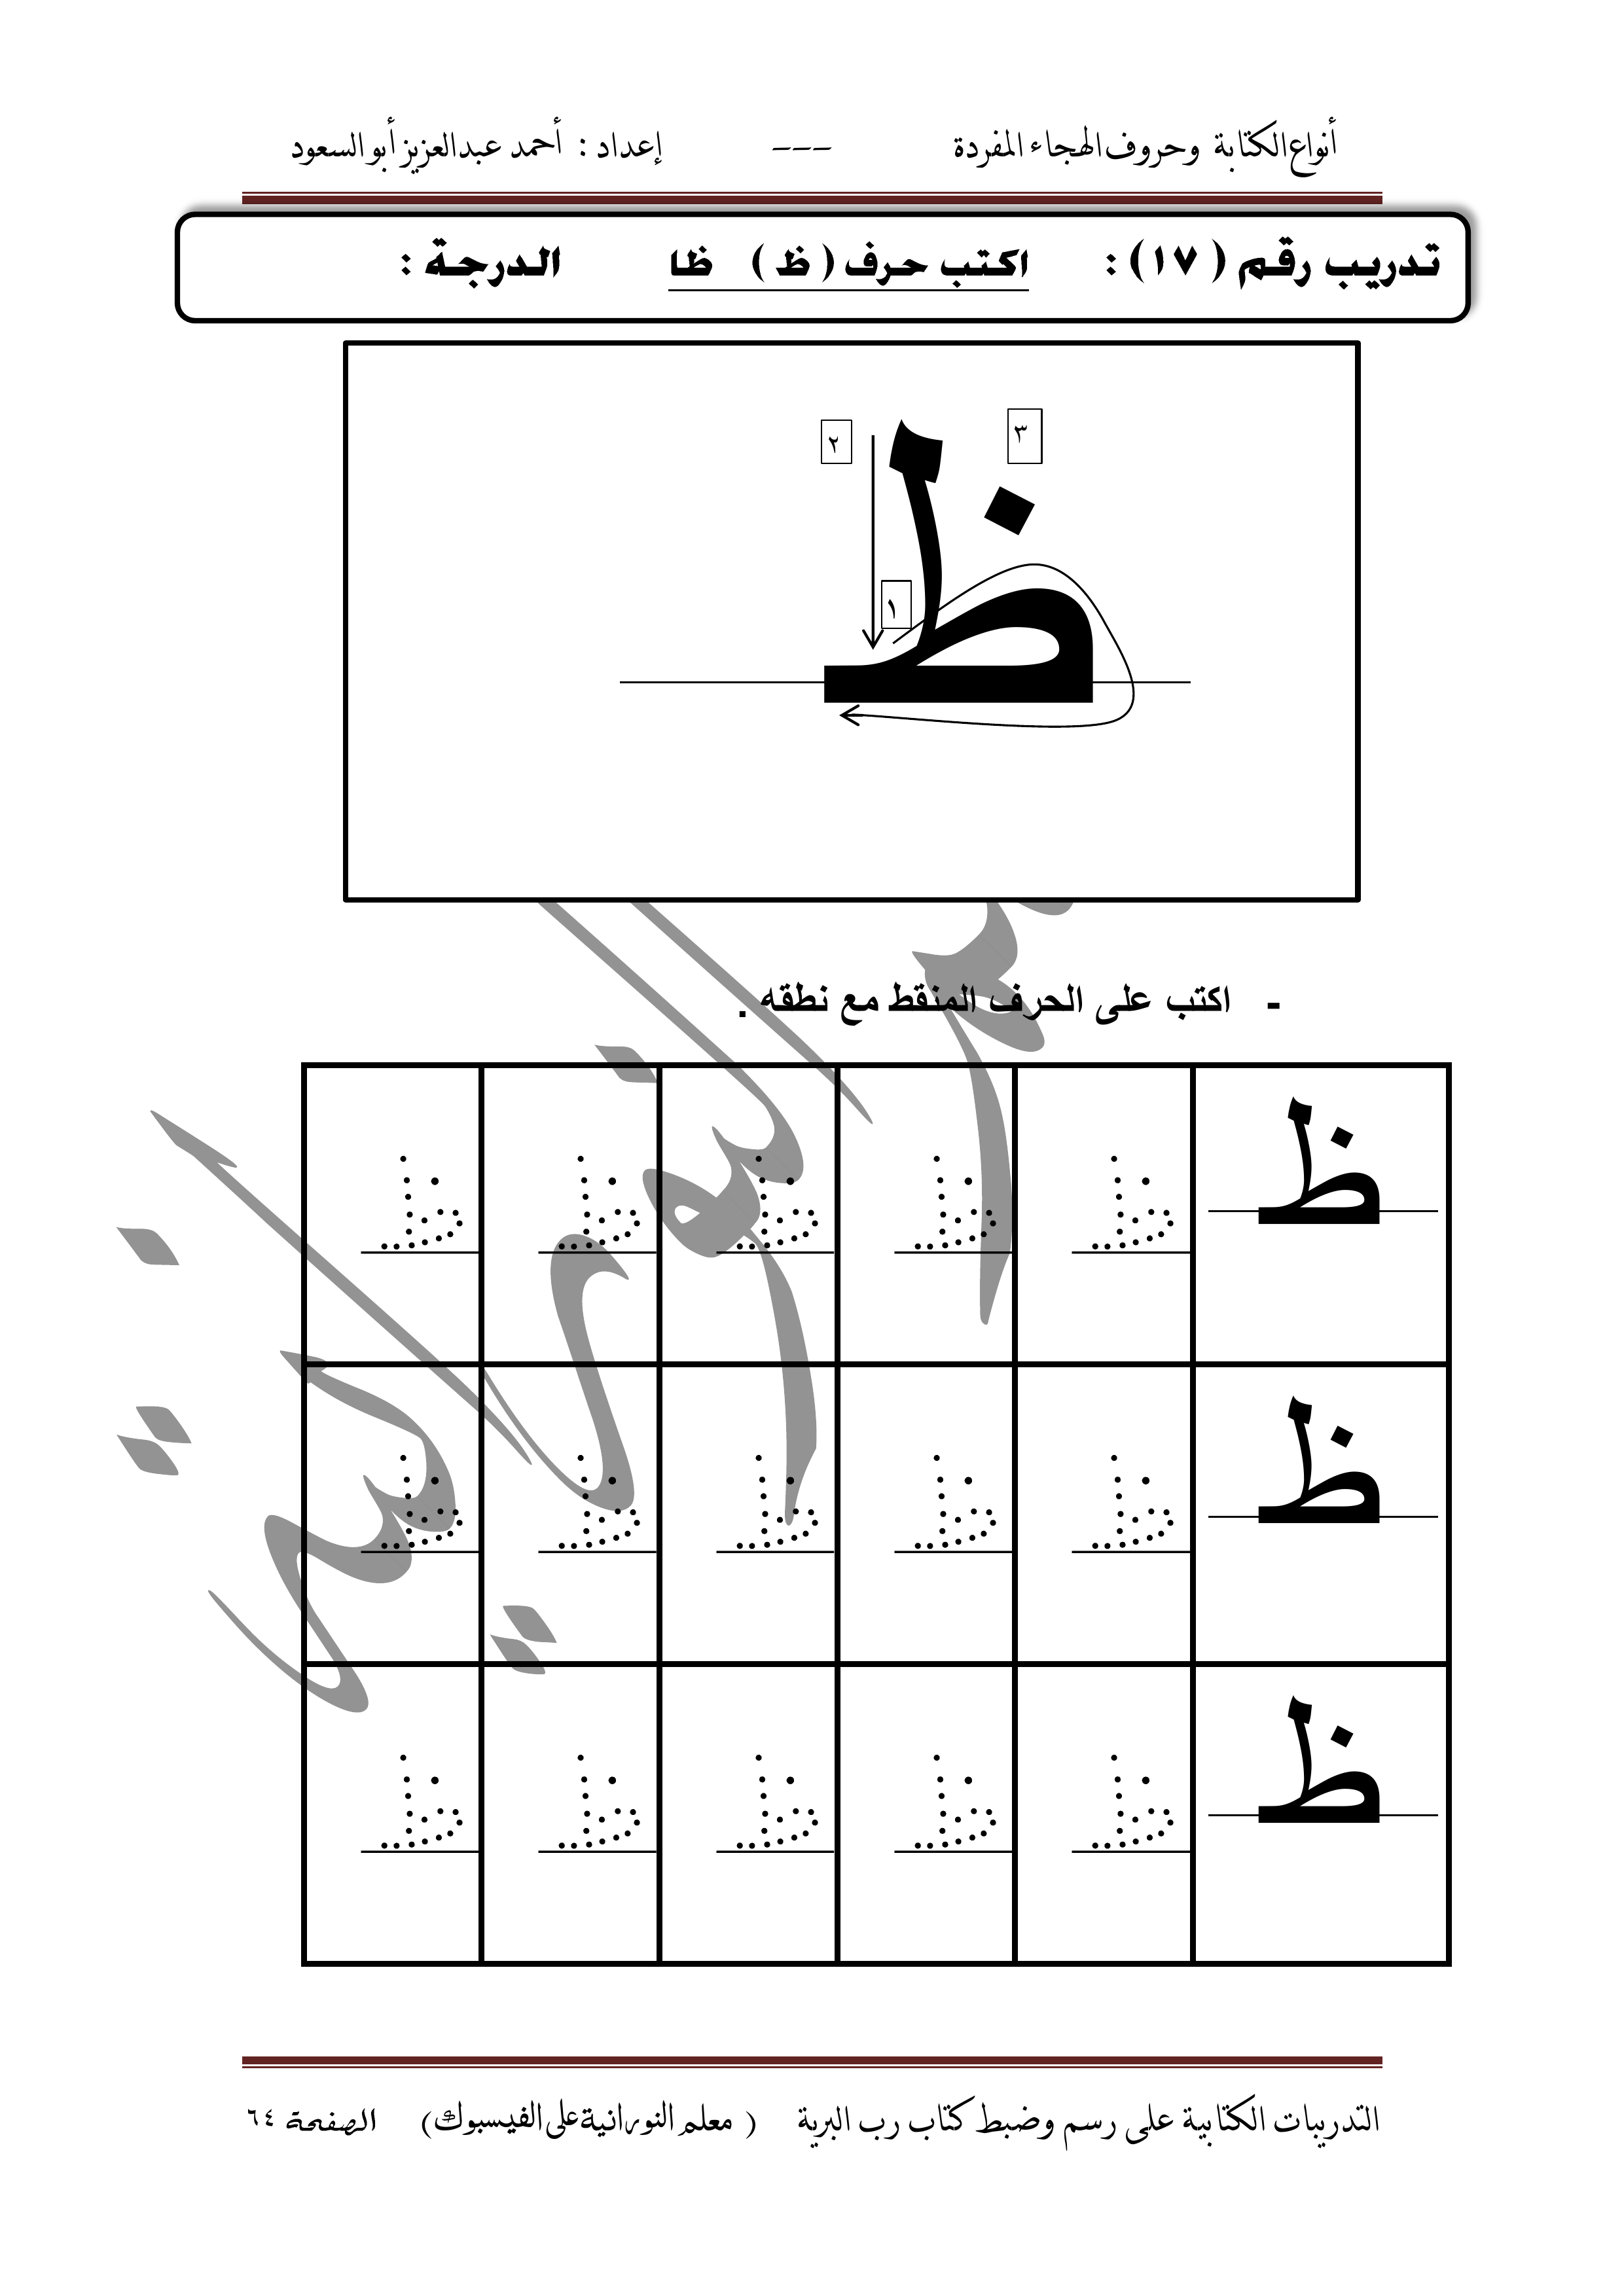 أنواع الكتابة وحروف الهجاء المفردة --- إعداد : أحمد عبدالعزيز أبو السعود
تدريب رقم ( ١٧ ) : اكتب حرف ( ظ ) ظا الدرجة :
٣ ٢
ظ
١
- اكتب على الحرف المنقط مع نطقه .
ظ ظ ظ ظ ظ ظ
ظ ظ ظ ظ ظ ظ
ظ ظ ظ ظ ظ ظ
التدريبات الكتابية على رسم وضبط كتاب رب البرية ( معلم النورانية على الفيسبوك ) الصفحة ٦٤